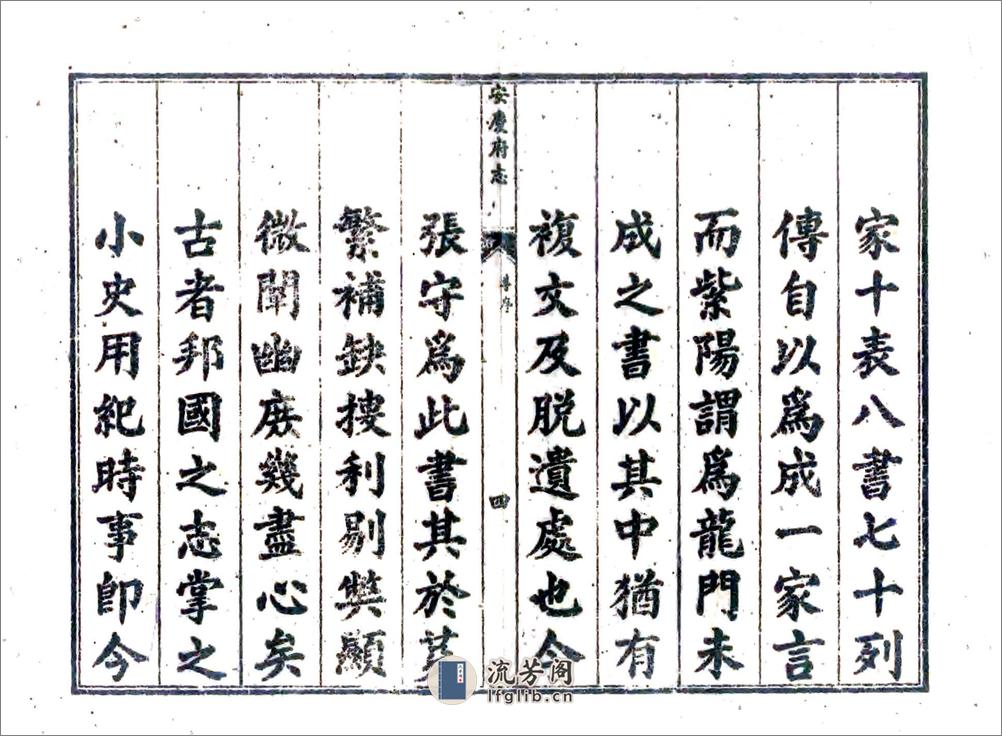 家十表八書七十列
傳自以爲成一家言
而紫陽謂爲龍門未
成之書以其中猶有
複文及脫遺處也今
安慶府志
序
四
張守爲此書其於芟
繁補缺搜利剔獘顯
微闡幽庶幾盡心矣
古者邦國之志掌之
小史用紀時事即今
流芳阁
lfglib.cn